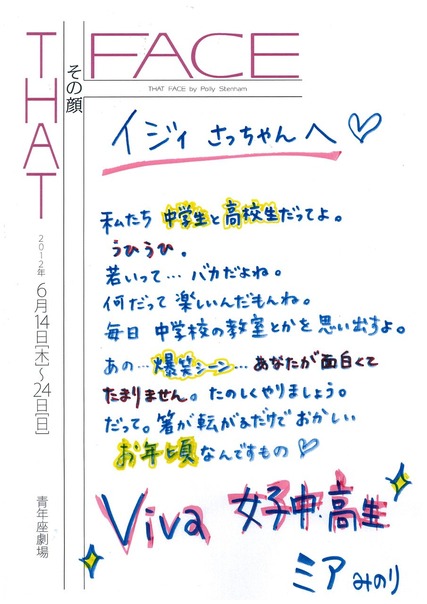 THAT
FACE
その顔
THAT FACE by Polly Stenham
2012年 6月14日[木]～24日[日]
青年座劇場
イジィ さっちゃんへ♡
私たち 中学生と高校生だってよ。
うひうひ。
若いって…バカだよね。
何だって楽しいんだもんね。
毎日 中学校の教室とかを思い出すよ。
あの…爆笑シーン…あなたが面白くて
たまりません。たのしくやりましょう。
だって。箸が転がるだけでおかしい
お年頃なんですもの♡
Viva 女子中・高生
ミア みのり